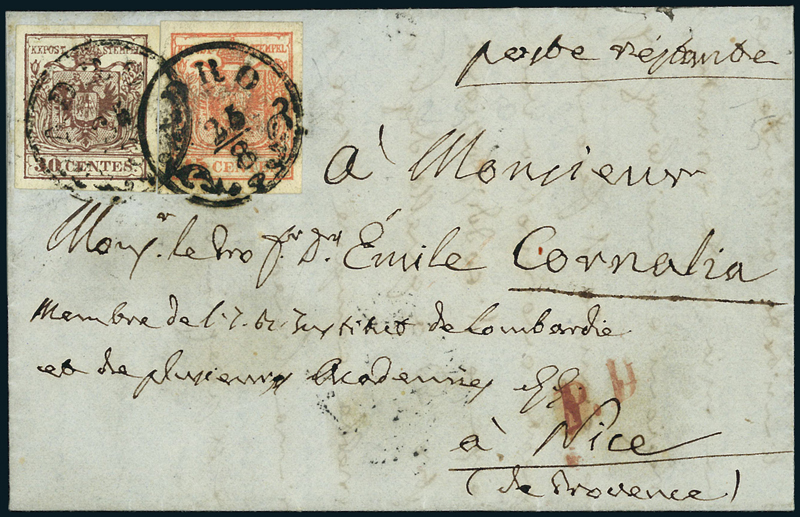 KKPOST STEMPEL
30 CENTES.
STEMPEL
15 CENTES.
DRO
24/8
poste réstante
à Monsieur
Monsr. le Prof. Dr. Émile Cornalia
Membre de l'I. R. Institut de Lombardie
et de plusieurs Academies &c.
à Nice
(de Provence)
P.D.